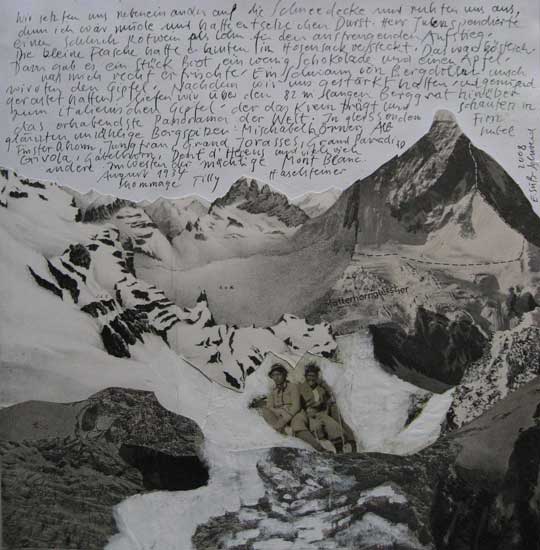 Wir setzten uns nebeneinander auf die Schneedecke und ruhten uns aus,
denn ich war müde und hatte entsetzlichen Durst. Herr Julen spendierte
einen Schluck Rotwein als Lohn für den anstrengenden Aufstieg.
Die kleine Flasche hatte er hinten im Hosensack versteckt. Das war köstlich.
Dann gab es ein Stück Brot ein wenig Schokolade und einen Apfel
was mich recht erfrischte. Ein Schwarm von Bergdohlen
wir von den Gipfel. Nachdem wir uns gestärkt hatten und genügend
gerastet hatten liefen wir über den 82 m langen Berggrat hinüber
zum italienischen Gipfel der das Kreuz trägt und schauten in
das erhabendste Panorama der Welt. In gleissendem Firn
glänzten unzählige Bergspitzen: Mischabelhörner, Alt
Finsteraarhorn, Jungfrau, Grand Jorasses, Gran Paradiso
Grivola, Gabelhorn, Dent d'Herens und viele
andere. Im Westen der mächtige Mont Blanc.
August 1934
Hommage Tilly Haechsteiner
2008
Matterhorngletscher